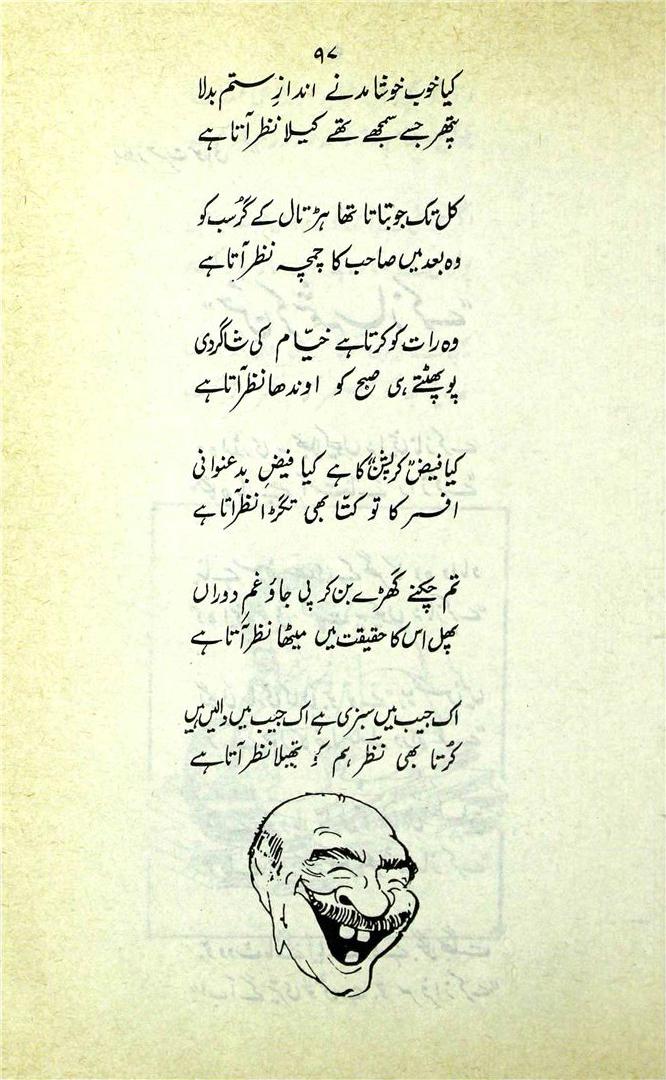 ۹۷
کیا خوب خوشامد نے اندازِ ستم بدلا
پتھر جسے سمجھے تھے کیلا نظر آتا ہے
کل تک جو بتاتا تھا ہڑتال کے گُر سب کو
وہ بعد میں صاحب کا چمچہ نظر آتا ہے
وہ رات کو کرتا ہے خیّام کی شاگردی
پو پھٹتے ہی صبح کو اوندھا نظر آتا ہے
کیا فیض کرپشن کا ہے کیا فیضِ بدعنوانی
افسر کا تو کتّا بھی تگڑا نظر آتا ہے
تم چکنے گھڑے بن کر پی جاؤ غمِ دوراں
پھل اس کا حقیقت میں میٹھا نظر آتا ہے
اک جیب میں سبزی ہے اک جیب میں دالیں ہیں
کُرتا بھی نظر ہم کو تھیلا نظر آتا ہے